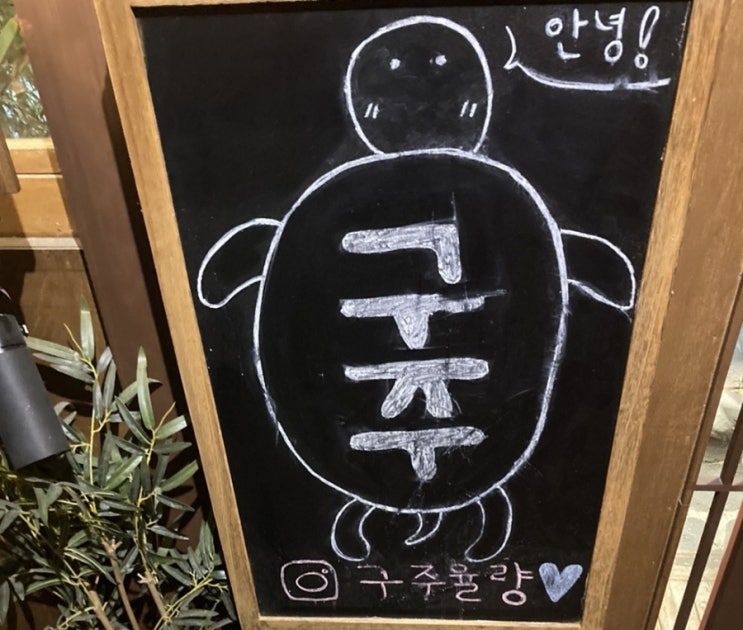 안녕!
구주
구주율량